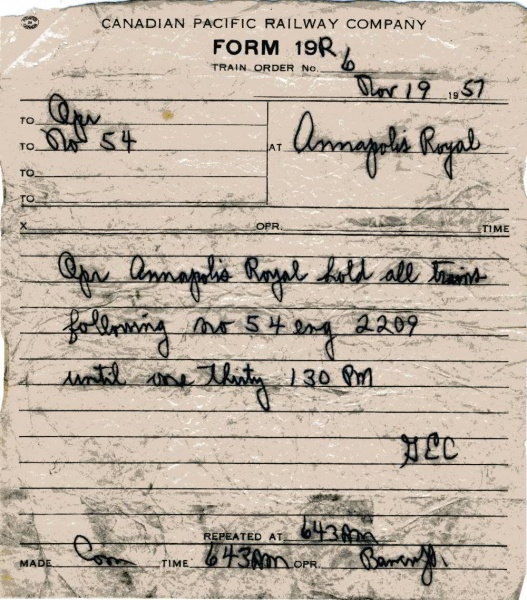 CANADIAN PACIFIC RAILWAY COMPANY
FORM 19R
TRAIN ORDER NO. 6
Nov 19 1957
TO Opr
TO No 54
AT Annapolis Royal
TO
TO
X OPR. TIME
Opr Annapolis Royal hold all trains
following no 54 eng 2209
until one thirty 130 PM
GEC
REPEATED AT 643AM
MADE Com TIME 643AM OPR.